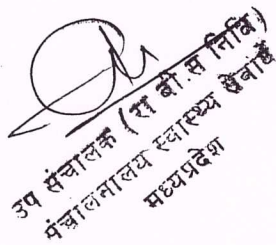 उप संचालक (रा बी.स निधि)
संचालनालय स्वास्थ्य सेवायें
मध्यप्रदेश